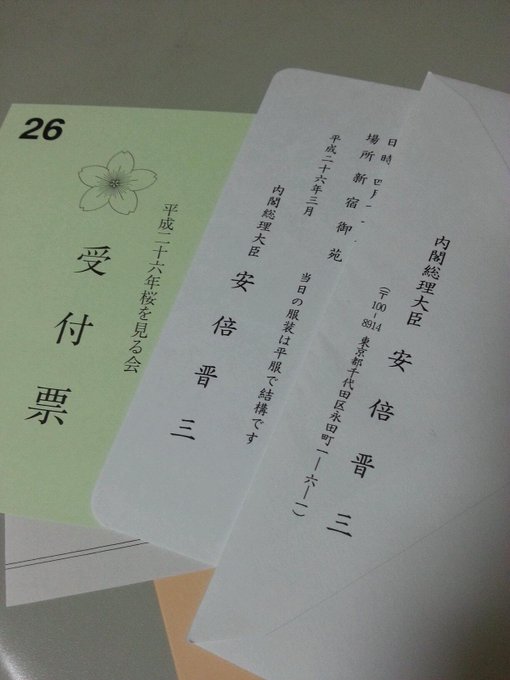 26
平成二十六年桜を見る会
受付票
日時
場所 新宿御苑
平成二十六年三月
内閣総理大臣 安倍晋三
当日の服装は平服で結構です
内閣総理大臣 安倍晋三
(〒100-8914 東京都千代田区永田町一-六-一)